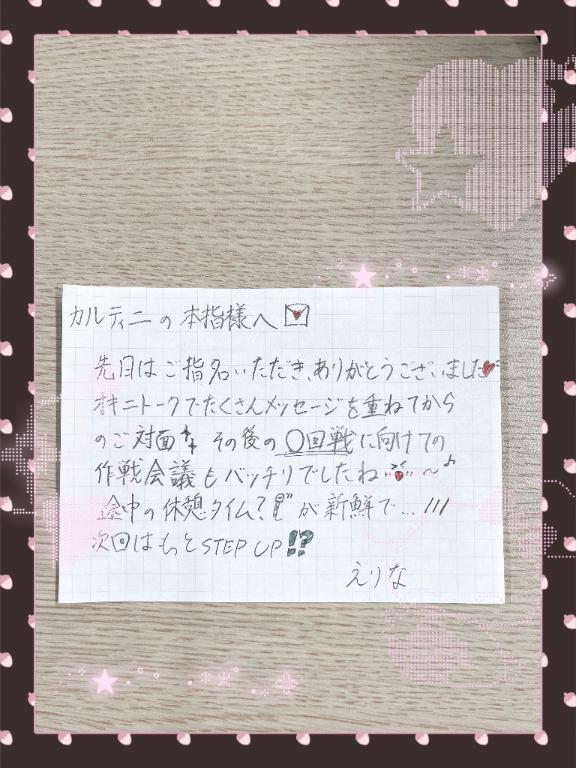 カルティニの本指様へ💌
先日はご指名いただき、ありがとうございました
オキニトークでたくさんメッセージを重ねてから
のご対面 その後の〇回戦に向けての
作戦会議もバッチリでしたね〜♪
途中の休憩タイム? が新鮮で...///
次回はもっとSTEP UP⁉
えりな